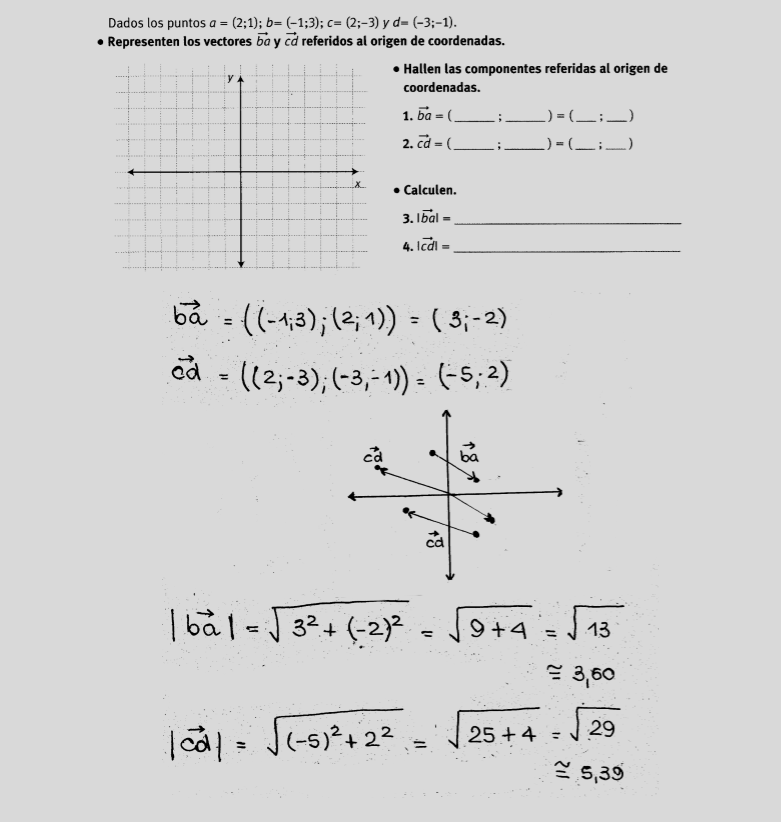 Dados los puntos a = (2;1); b= (−1;3); c= (2;−3) y d= (−3;−1).
• Representen los vectores ba y cd referidos al origen de coordenadas.
y
x
• Hallen las componentes referidas al origen de
coordenadas.
1. ba = (______ ; ______ ) = (___ ; ___ )
2. cd = (______ ; ______ ) = (___ ; ___ )
• Calculen.
3. |ba| = ______________________
4. |cd| = ______________________
ba = ((-1;3);(2;1)) = (3;-2)
cd = ((2;-3);(-3,-1)) = (-5;2)
cd
ba
cd
|ba| = √3² + (-2)² = √9+4 = √13
≅ 3,60
|cd| = √(-5)² + 2² = √25+4 = √29
≅ 5,39